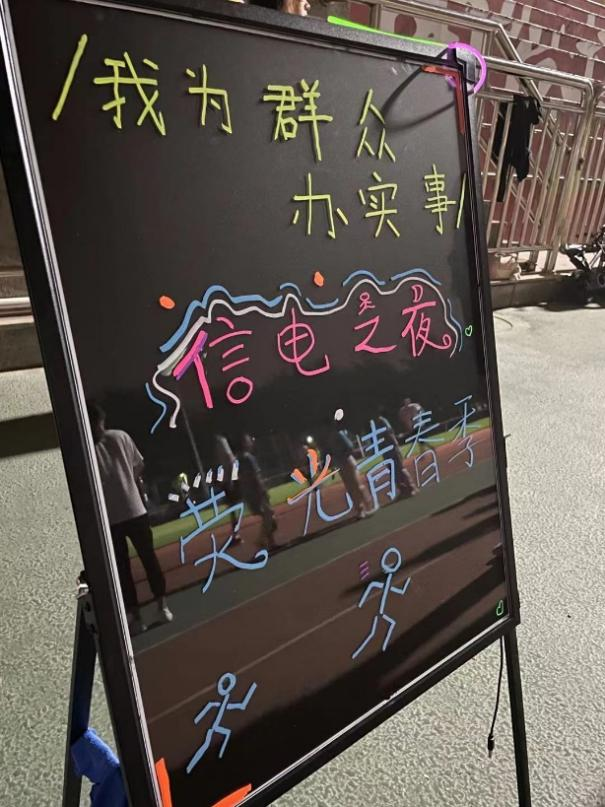 /我为群众
办实事/
信电之夜
荧光青春季